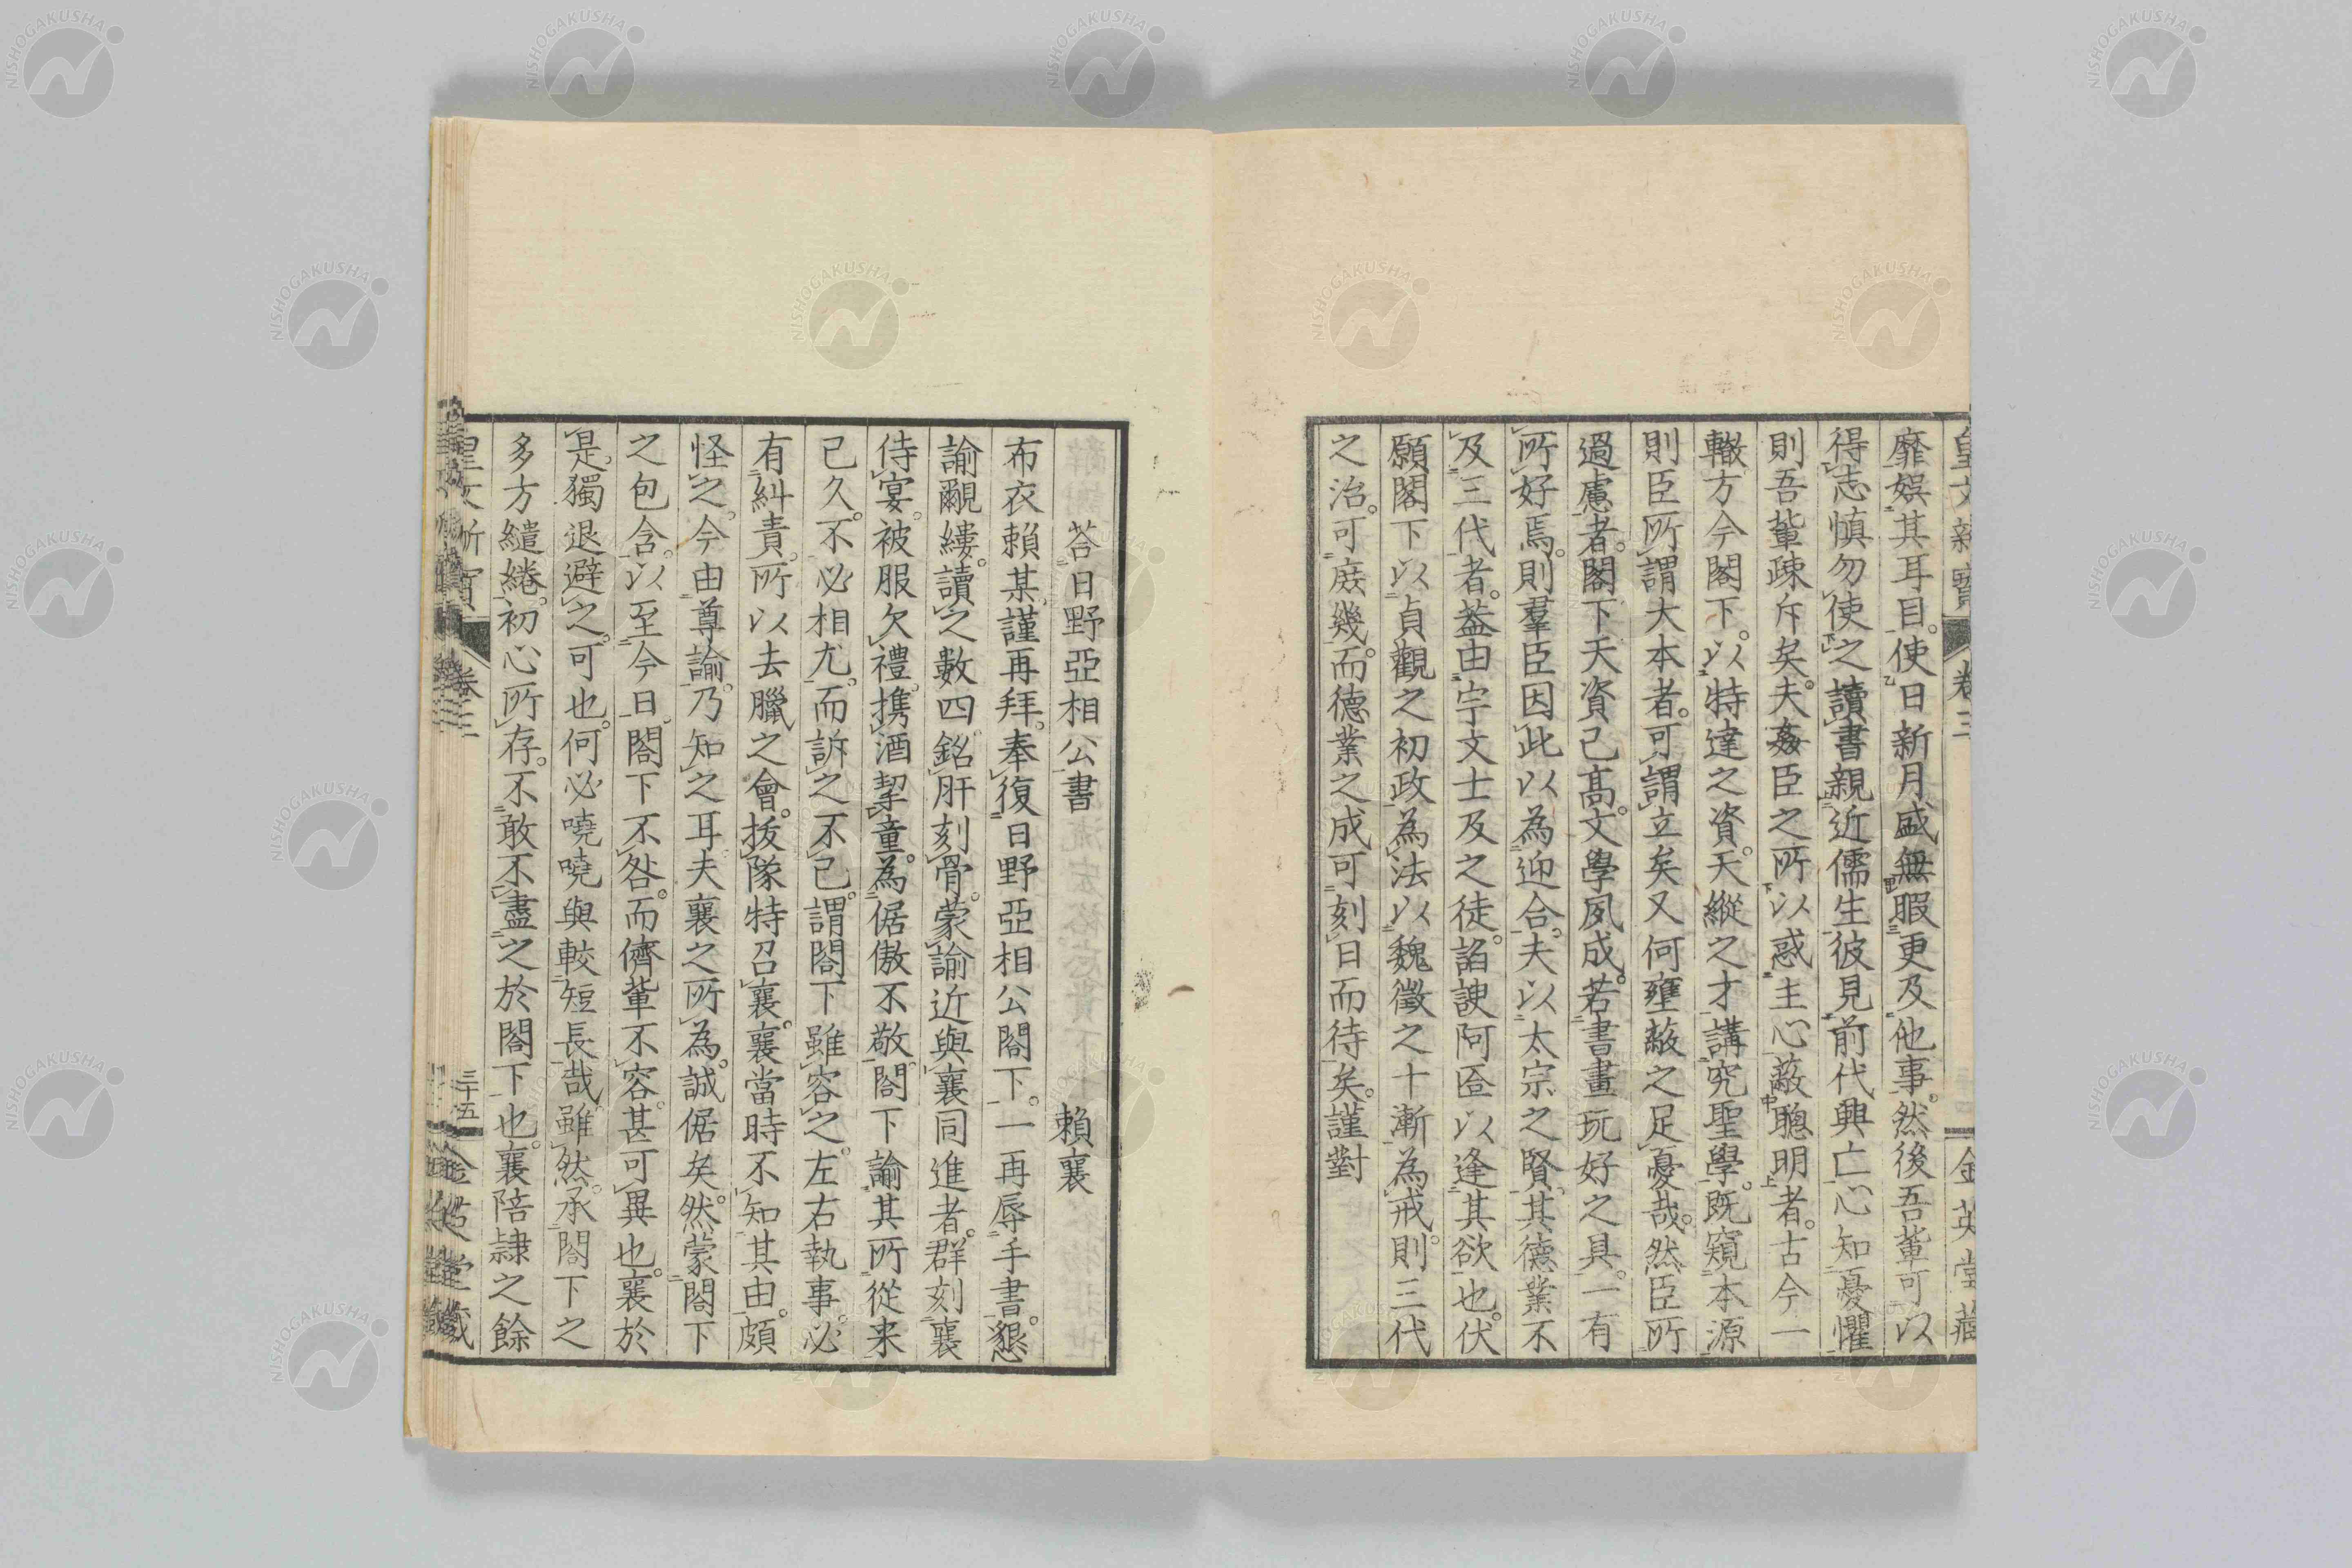 靡娯其耳目。使日新月盛無暇更及他事。然後吾輩可以
得志慎勿使之讀書親近儒生彼見前代興亡心知憂懼
則吾輩疎斥矣。夫姦臣之所以惑主心蔽聰明者。古今一
轍方今閤下。以特達之資。天縱之才講究聖學。既窺本源
則臣所謂大本者。可謂立矣又何壅蔽之足憂哉。然臣所
過慮者。閤下天資已髙。文學夙成。若書畫玩好之具。一有
所好焉。則羣臣因此以為迎合。夫以太宗之賢。其德業不
及三代者。葢由宇文士及之徒。諂諛阿匼以逢其欲也。伏
願閤下以貞觀之初政為法以魏徵之十漸為戒則。三代
之治。可庶幾。而德業之成可刻日而待矣。謹對
荅日野亞相公書 賴襄
布衣賴某謹再拜。奉復日野亞相公閤下。一再辱手書。懇
諭覼縷。讀之數四銘肝刻骨。蒙諭近與襄同進者。群刻襄
侍宴。被服欠禮。携酒挈童。為倨傲不敬。閤下諭其所從来
已久。不必相尤。而訴之不已。謂閤下雖容之。左右執事必
有糾責。所以去臘之會。拔隊特召襄。襄當時不知其由。頗
怪之。今由尊諭。乃知之耳夫襄之所為。誠倨矣。然蒙閤下
之包含。以至今日閤下不咎。而儕輩不容。甚可異也。襄於
是。獨退避之。可也。何必嘵嘵與較短長哉。雖然。承閤下之
多方繾綣。初心所存。不敢不盡之於閤下也。襄陪隷之餘
卷三
三十五